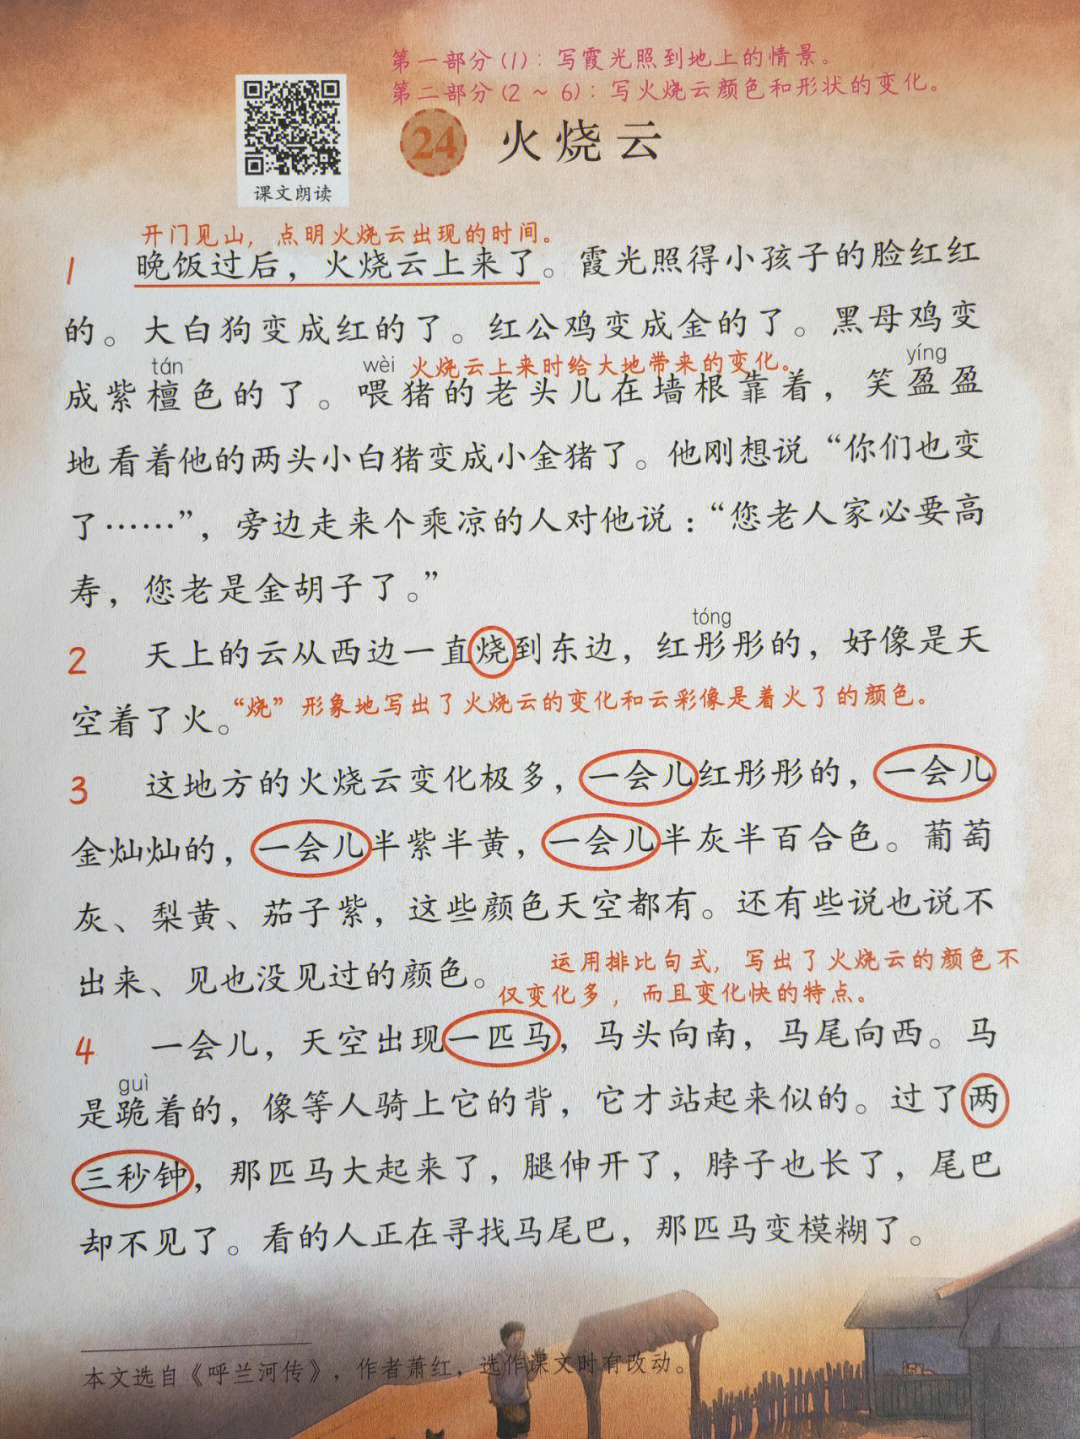 第一部分(1)：写霞光照到地上的情景。
第二部分(2～6)：写火烧云颜色和形状的变化。
24 火烧云
课文朗读
开门见山，点明火烧云出现的时间。
1 晚饭过后，火烧云上来了。霞光照得小孩子的脸红红
的。大白狗变成红的了。红公鸡变成金的了。黑母鸡变
tán wèi 火烧云上来时给大地带来的变化。 yíng
成紫檀色的了。喂猪的老头儿在墙根靠着，笑盈盈
地看着他的两头小白猪变成小金猪了。他刚想说“你们也变
了……”，旁边走来个乘凉的人对他说：“您老人家必要高
寿，您老是金胡子了。”
tóng
2 天上的云从西边一直烧到东边，红彤彤的，好像是天
空着了火。“烧”形象地写出了火烧云的变化和云彩像是着火了的颜色。
3 这地方的火烧云变化极多，一会儿红彤彤的，一会儿
金灿灿的，一会儿半紫半黄，一会儿半灰半百合色。葡萄
灰、梨黄、茄子紫，这些颜色天空都有。还有些说也说不
出来、见也没见过的颜色。
运用排比句式，写出了火烧云的颜色不
仅变化多，而且变化快的特点。
4 一会儿，天空出现一匹马，马头向南，马尾向西。马
guì
是跪着的，像等人骑上它的背，它才站起来似的。过了两
三秒钟，那匹马大起来了，腿伸开了，脖子也长了，尾巴
却不见了。看的人正在寻找马尾巴，那匹马变模糊了。
本文选自《呼兰河传》，作者萧红，选作课文时有改动。